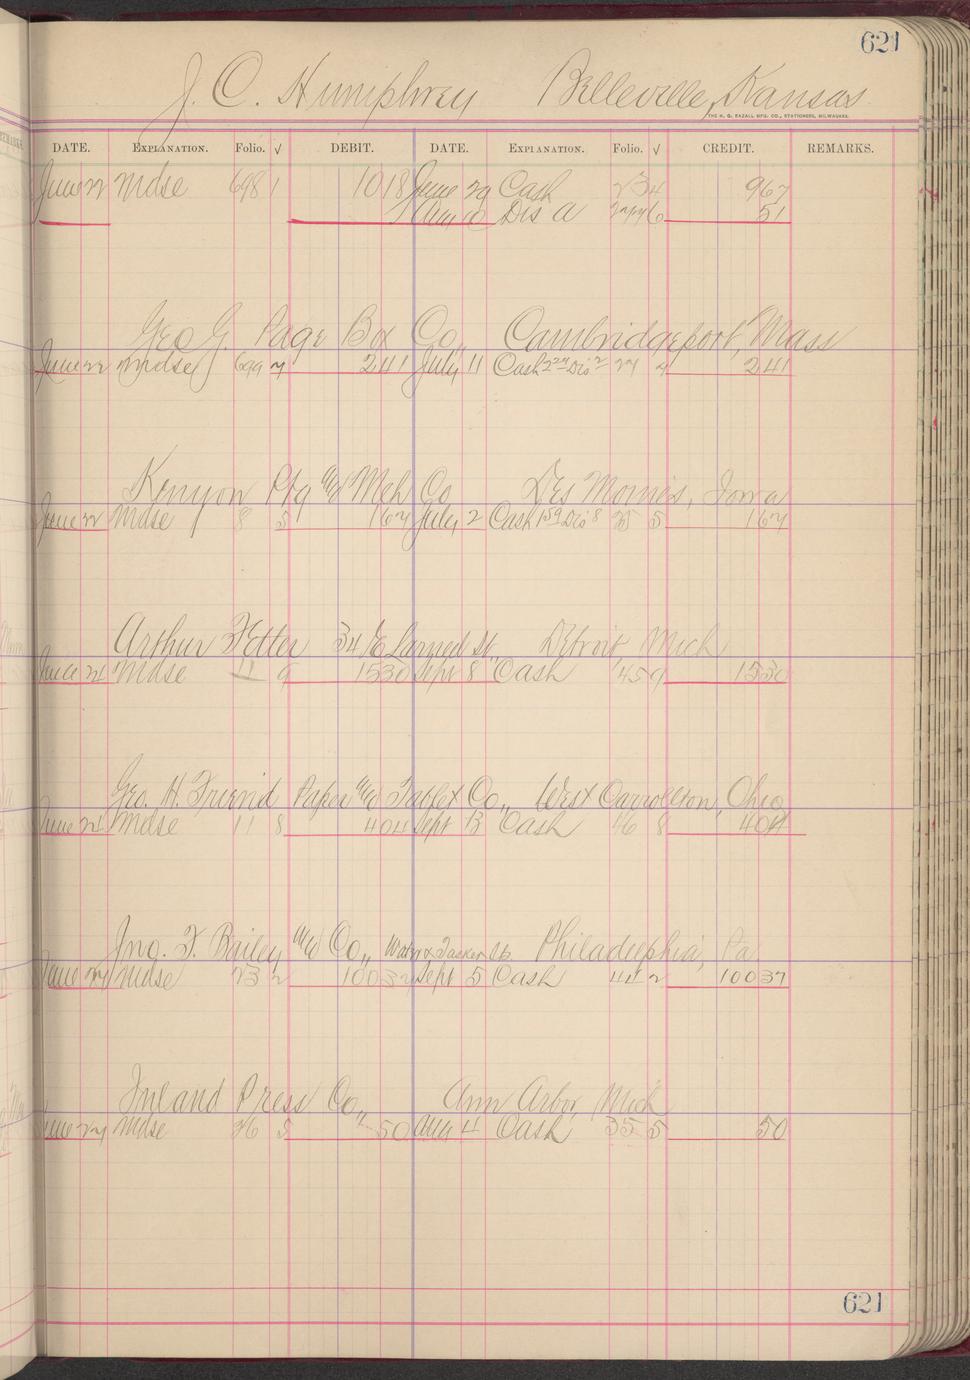 621
J. C. Humphrey Belleville, Kansas
THE H. G. RAZALL MFG. CO., STATIONERS, MILWAUKEE.
DATE. EXPLANATION. Folio. √ DEBIT. DATE. EXPLANATION. Folio. √ CREDIT. REMARKS.
June 22 Mdse 698 1 1018 June 29 Cash 23 4 967
Dis 6 51
Geo G. Page Box Co., Cambridgeport, Mass
June 22 Mdse 699 7 241 July 11 Cash Dis 27 241
Kenyon Ptg & Mch Co Des Moines, Iowa
June 22 Mdse 8 5 167 July 2 Cash 159 Dis 8 25 5 167
Arthur Fetter 34 E Larned St. Detroit Mich
June 24 Mdse 11 9 1530 Sept 8 Cash 45 9 1530
Geo. H. Friend Paper & Tablet Co., West Carrollton, Ohio
June 24 Mdse 11 8 404 Sept 13 Cash 46 8 404
Jno. T. Bailey & Co., Water & Tasker Sts. Philadelphia, Pa
June 27 Mdse 23 2 10037 Sept 5 Cash 44 2 10037
Inland Press Co., Ann Arbor, Mich
June 27 Mdse 26 5 50 Aug 4 Cash 35 5 50
621